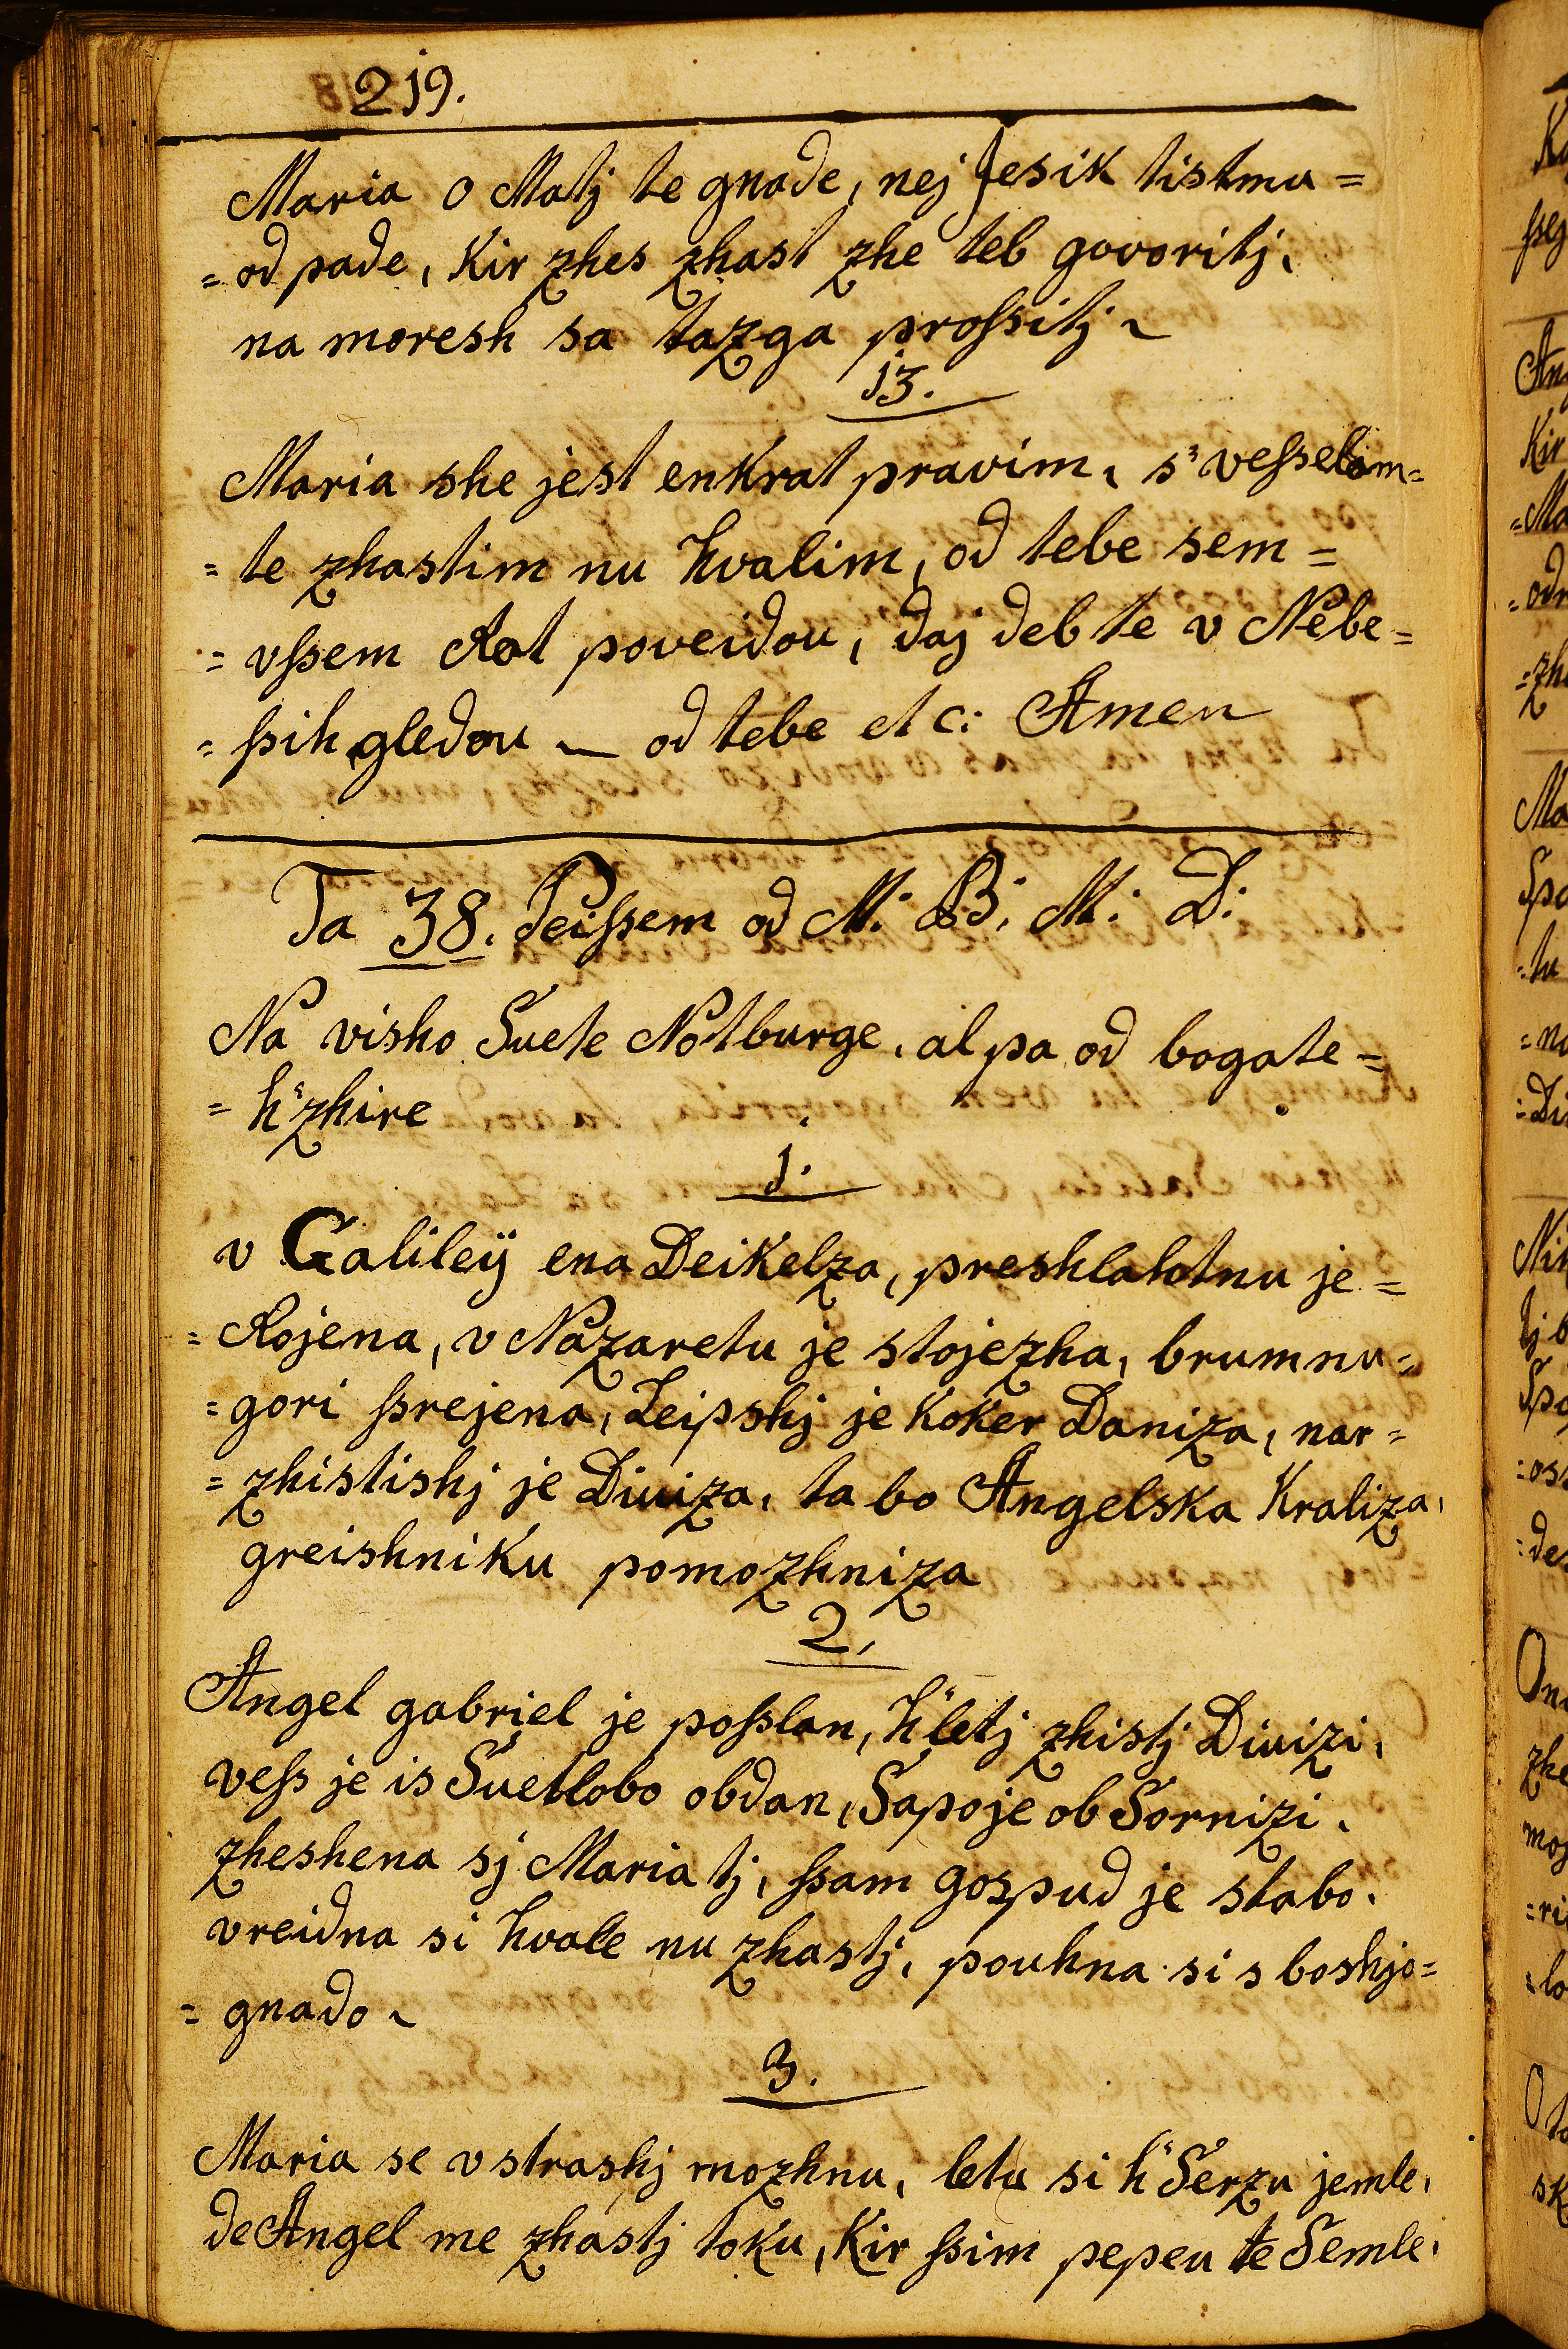 219.
Maria o Matj te gnade, nej Jesik tistmu=
= od pade, Kir zhes zhast zhe teb govoritj,
na moresh sa tazga profsitj ~
13.
Maria she jest enkrat pravim, s' vefselam=
= te zhastim nu hvalim, od tebe sem =
= vfsem Rat poveidou, daj deb te v Nebe=
= fsih gledou — od tebe etc: Amen
Ta 38. Peifsem od M: B: M: D:
Na visho Suete Notburge, al pa od bogate=
= h' zhire
1.
v Galileij ena Deikelza, preshlahtnu je =
= Rojena, v Nazaretu je stojezha, brumnu=
= gori fsrejena, Leipshj je Koker Daniza, nar=
= zhistishj je Diviza, ta bo Angelska Kraliza,
greishniku pomozhniza
2.
Angel gabriel je pofslan, h' letj zhistj Divizi,
vefs je is Suetlobo obdan, Sapoje ob Sornizi.
zheshena sj Maria tj, fsam gospud je stabo.
vreidna si hvale nu zhastj, pouhna si s boshjo=
= gnado ~
3.
Maria se v strashj mozhnu, letu si h' Serzu jemle,
de Angel me zhastj toku, Kir fsim pepeu te Semle,